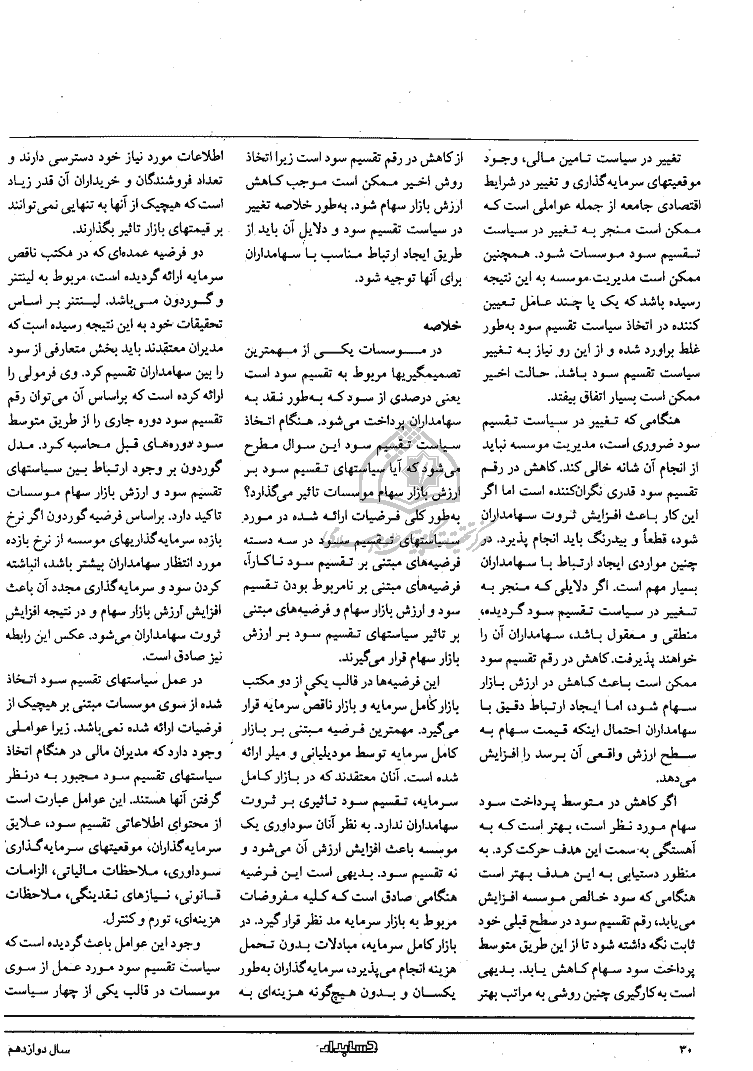 تغییر در سیاست تامین مالی، وجود
موقعیتهای سرمایه‌گذاری و تغییر در شرایط
اقتصادی جامعه از جمله عواملی است که
ممکن است منجر به تغییر در سیاست
تقسیم سود موسسات شود. همچنین
ممکن است مدیریت موسسه به این نتیجه
رسیده باشد که یک یا چند عامل تعیین
کننده در اتخاذ سیاست تقسیم سود به‌طور
غلط براورد شده و از این رو نیاز به تغییر
سیاست تقسیم سود باشد. حالت اخیر
ممکن است بسیار اتفاق بیفتد.
هنگامی که تغییر در سیاست تقسیم
سود ضروری است، مدیریت موسسه نباید
از انجام آن شانه خالی کند. کاهش در رقم
تقسیم سود قدری نگران‌کننده است اما اگر
این کار باعث افزایش ثروت سهامداران
شود، قطعاً و بیدرنگ باید انجام پذیرد. در
چنین مواردی ایجاد ارتباط با سهامداران
بسیار مهم است. اگر دلایلی که منجر به
تغییر در سیاست تقسیم سود گردیده،
منطقی و معقول باشد، سهامداران آن را
خواهند پذیرفت. کاهش در رقم تقسیم سود
ممکن است باعث کاهش در ارزش بازار
سهام شود، اما ایجاد ارتباط دقیق با
سهامداران احتمال اینکه قیمت سهام به
سطح ارزش واقعی آن برسد را افزایش
می‌دهد.
اگر کاهش در متوسط پرداخت سود
سهام مورد نظر است، بهتر است که به
آهستگی به سمت این هدف حرکت کرد. به
منظور دستیابی به این هدف بهتر است
هنگامی که سود خالص موسسه افزایش
می‌یابد، رقم تقسیم سود در سطح قبلی خود
ثابت نگه داشته شود تا از این طریق متوسط
پرداخت سود سهام کاهش یابد. بدیهی
است به‌کارگیری چنین روشی به مراتب بهتر
از کاهش در رقم تقسیم سود است زیرا اتخاذ
روش اخیر ممکن است موجب کاهش
ارزش بازار سهام شود. به‌طور خلاصه تغییر
در سیاست تقسیم سود و دلایل آن باید از
طریق ایجاد ارتباط مناسب با سهامداران
برای آنها توجیه شود.
خلاصه
در موسسات یکی از مهمترین
تصمیمگیریها مربوط به تقسیم سود است
یعنی درصدی از سود که به‌طور نقد به
سهامداران پرداخت می‌شود. هنگام اتخاذ
سیاست تقسیم سود این سوال مطرح
می‌شود که آیا سیاستهای تقسیم سود بر
ارزش بازار سهام موسسات تاثیر می‌گذارد؟
به‌طور کلی فرضیات ارائه شده در مورد
سیاستهای تقسیم سود در سه دسته
فرضیه‌های مبتنی بر تقسیم سود ناکارآ،
فرضیه‌های مبتنی بر نامربوط بودن تقسیم
سود و ارزش بازار سهام و فرضیه‌های مبتنی
بر تاثیر سیاستهای تقسیم سود بر ارزش
بازار سهام قرار می‌گیرند.
این فرضیه‌ها در قالب یکی از دو مکتب
بازار کامل سرمایه و بازار ناقص سرمایه قرار
می‌گیرد. مهمترین فرضیه مبتنی بر بازار
کامل سرمایه توسط مودیلیانی و میلر ارائه
شده است. آنان معتقدند که در بازار کامل
سرمایه، تقسیم سود تاثیری بر ثروت
سهامداران ندارد. به نظر آنان سوداوری یک
موسسه باعث افزایش ارزش آن می‌شود و
نه تقسیم سود. بدیهی است این فرضیه
هنگامی صادق است که کلیه مفروضات
مربوط به بازار سرمایه مد نظر قرار گیرد. در
بازار کامل سرمایه، مبادلات بدون تحمل
هزینه انجام می‌پذیرد، سرمایه‌گذاران به‌طور
یکسان و بدون هیچ‌گونه هزینه‌ای به
اطلاعات مورد نیاز خود دسترسی دارند و
تعداد فروشندگان و خریداران آن قدر زیاد
است که هیچیک از آنها به تنهایی نمی‌توانند
بر قیمتهای بازار تاثیر بگذارند.
دو فرضیه عمده‌ای که در مکتب ناقص
سرمایه ارائه گردیده است، مربوط به لینتنر
و گوردون می‌باشد. لینتنر بر اساس
تحقیقات خود به این نتیجه رسیده است که
مدیران معتقدند باید بخش متعارفی از سود
را بین سهامداران تقسیم کرد. وی فرمولی را
ارائه کرده است که براساس آن می‌توان رقم
تقسیم سود دوره جاری را از طریق متوسط
سود دوره‌های قبل محاسبه کرد. مدل
گوردون بر وجود ارتباط بین سیاستهای
تقسیم سود و ارزش بازار سهام موسسات
تاکید دارد. براساس فرضیه گوردون اگر نرخ
بازده سرمایه‌گذاریهای موسسه از نرخ بازده
مورد انتظار سهامداران بیشتر باشد، انباشته
کردن سود و سرمایه‌گذاری مجدد آن باعث
افزایش ارزش بازار سهام و در نتیجه افزایش
ثروت سهامداران می‌شود. عکس این رابطه
نیز صادق است.
در عمل سیاستهای تقسیم سود اتخاذ
شده از سوی موسسات مبتنی بر هیچیک از
فرضیات ارائه شده نمی‌باشد. زیرا عواملی
وجود دارد که مدیران مالی در هنگام اتخاذ
سیاستهای تقسیم سود مجبور به درنظر
گرفتن آنها هستند. این عوامل عبارت است
از محتوای اطلاعاتی تقسیم سود، علایق
سرمایه‌گذاران، موقعیتهای سرمایه‌گذاری،
سوداوری، ملاحظات مالیاتی، الزامات
قانونی، نیازهای نقدینگی، ملاحظات
هزینه‌ای، تورم و کنترل.
وجود این عوامل باعث گردیده است که
سیاست تقسیم سود مورد عمل از سوی
موسسات در قالب یکی از چهار سیاست
۳۰
حسابدار
سال دوازدهم